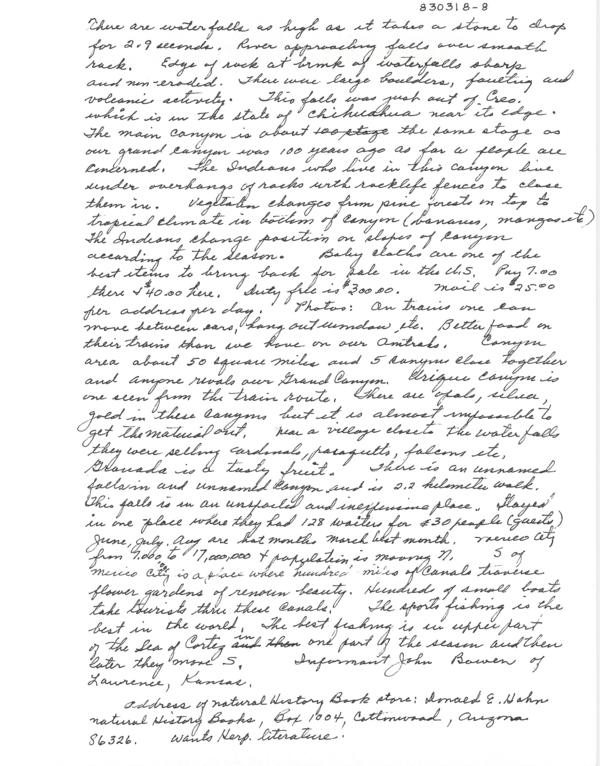 830318-8
There are waterfalls as high as it takes a stone to drop
for 2.9 seconds. River approaching falls over smooth
rock. Edge of rock at brink of waterfalls sharp
and non-eroded. There were large boulders, faulting and
volcanic activity. This falls was just out of Creo.
which is in the state of Chihuahua near its edge.
The main canyon is about 100 stage the same stage as
our grand canyon was 100 years ago as far a people are
concerned. The Indeans who live in this canyon live
under overhangs of rocks with rocklife fences to close
them in. Vegetation changes from pine forests on top to
tropical climate in bottom of canyon (bananas, mangos etc)
The Indeans change position on slopes of canyon
according to the season. Baby cloths are one of the
best items to bring back for sale in the U.S. Pay 7.00
there & $40.00 here. Duty free is $300.00. Mail is $25.00
per address per day. Photos: On trains one can
move between cars, hang out window etc. Better food on
their trains than we have on our Amtraks. Canyon
area about 50 square miles and 5 canyons close together
and anyone rivals our Grand Canyon. Urique canyon is
one seen from the train route. There are opals, silver,
gold in these canyons but it is almost impossible to
get the material out. Near a village close to the waterfalls
they were selling cardinals, paraquetts, falcons etc.
Granada is a tasty fruit. There is an unnamed
falls in and unnamed canyon and is 2.2 kilometer walk.
This falls is in an unspoiled and inexpensive place. Stayed
in one place where they had 128 waiters for $30 people (guests)
June, July, Aug are hot months March best month. Mexico City
from 7,000 to 17,000,000 & population is moving N. S of
Mexico City is a place where hundred miles of canals traverse
flower gardens of renoun beauty. Hundreds of small boats
take tourists thru these canals. The sports fishing is the
best in the world. The best fishing is in upper part
of the Sea of Cortez in and then one part of the season and then
later they move S. Informant John Bowen of
Lawrence, Kansas.
Address of natural History Book store: Donald E. Hahn
natural History Books, Box 1004, Cottonwood, Arizona
86326. Wants Herp. literature.